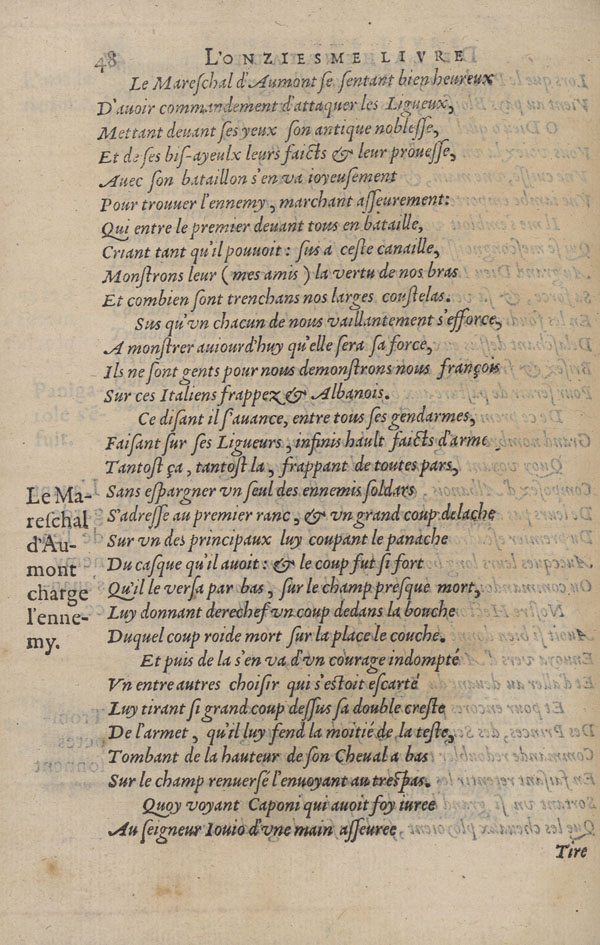 48 L'ONZIESME LIVRE
Le Mareſchal d'Aumont ſe ſentant bien heureux
D'auoir commandement d'attaquer les Ligueux,
Mettant deuant ſes yeux ſon antique nobleſſe,
Et de ſes biſ-ayeulx leurs faicts & leur proueſſe,
Auec ſon bataillon s'en va ioyeuſement
Pour trouuer l'ennemy, marchant aſſeurement:
Qui entre le premier deuant tous en bataille,
Criant tant qu'il pouuoit: ſus a ceſte canaille,
Monſtrons leur (mes amis) la vertu de nos bras
Et combien ſont trenchans nos larges couſtelas.
Sus qu'vn chacun de nous vaillantement s'efforce,
A monſtrer auiourd'huy qu'elle ſera ſa force,
Ils ne ſont gents pour nous demonſtrons nous françois
Sur ces Italiens frappez & Albanois.
Ce diſant il s'auance, entre tous ſes gendarmes,
Faiſant ſur ſes Ligueurs, infinis hault faicts d'arme
Tantoſt ça, tantoſt la, frappant de toutes pars,
Sans eſpargner vn ſeul des ennemis ſoldars
S'adreſſe au premier ranc, & vn grand coup delache
Sur vn des principaux luy coupant le panache
Du caſque qu'il auoit: & le coup fut ſi fort
Qu'il le verſa par bas, ſur le champ preſque mort,
Luy donnant derechef vn coup dedans la bouche
Duquel coup roide mort ſur la place le couche.
Et puis de la s'en va d'vn courage indompté
Vn entre autres choiſir qui s'eſtoit eſcarté
Luy tirant ſi grand coup deſſus ſa double creſte
De l'armet, qu'il luy fend la moitié de la teſte,
Tombant de la hauteur de ſon Cheual a bas
Sur le champ renuerſé l'enuoyant au treſpas.
Quoy voyant Caponi qui auoit foy iuree
Au ſeigneur Iouio d'vne main aſſeuree
Tire
Le Ma-
reſchal
d'Au-
mont
charge
l'enne-
my.